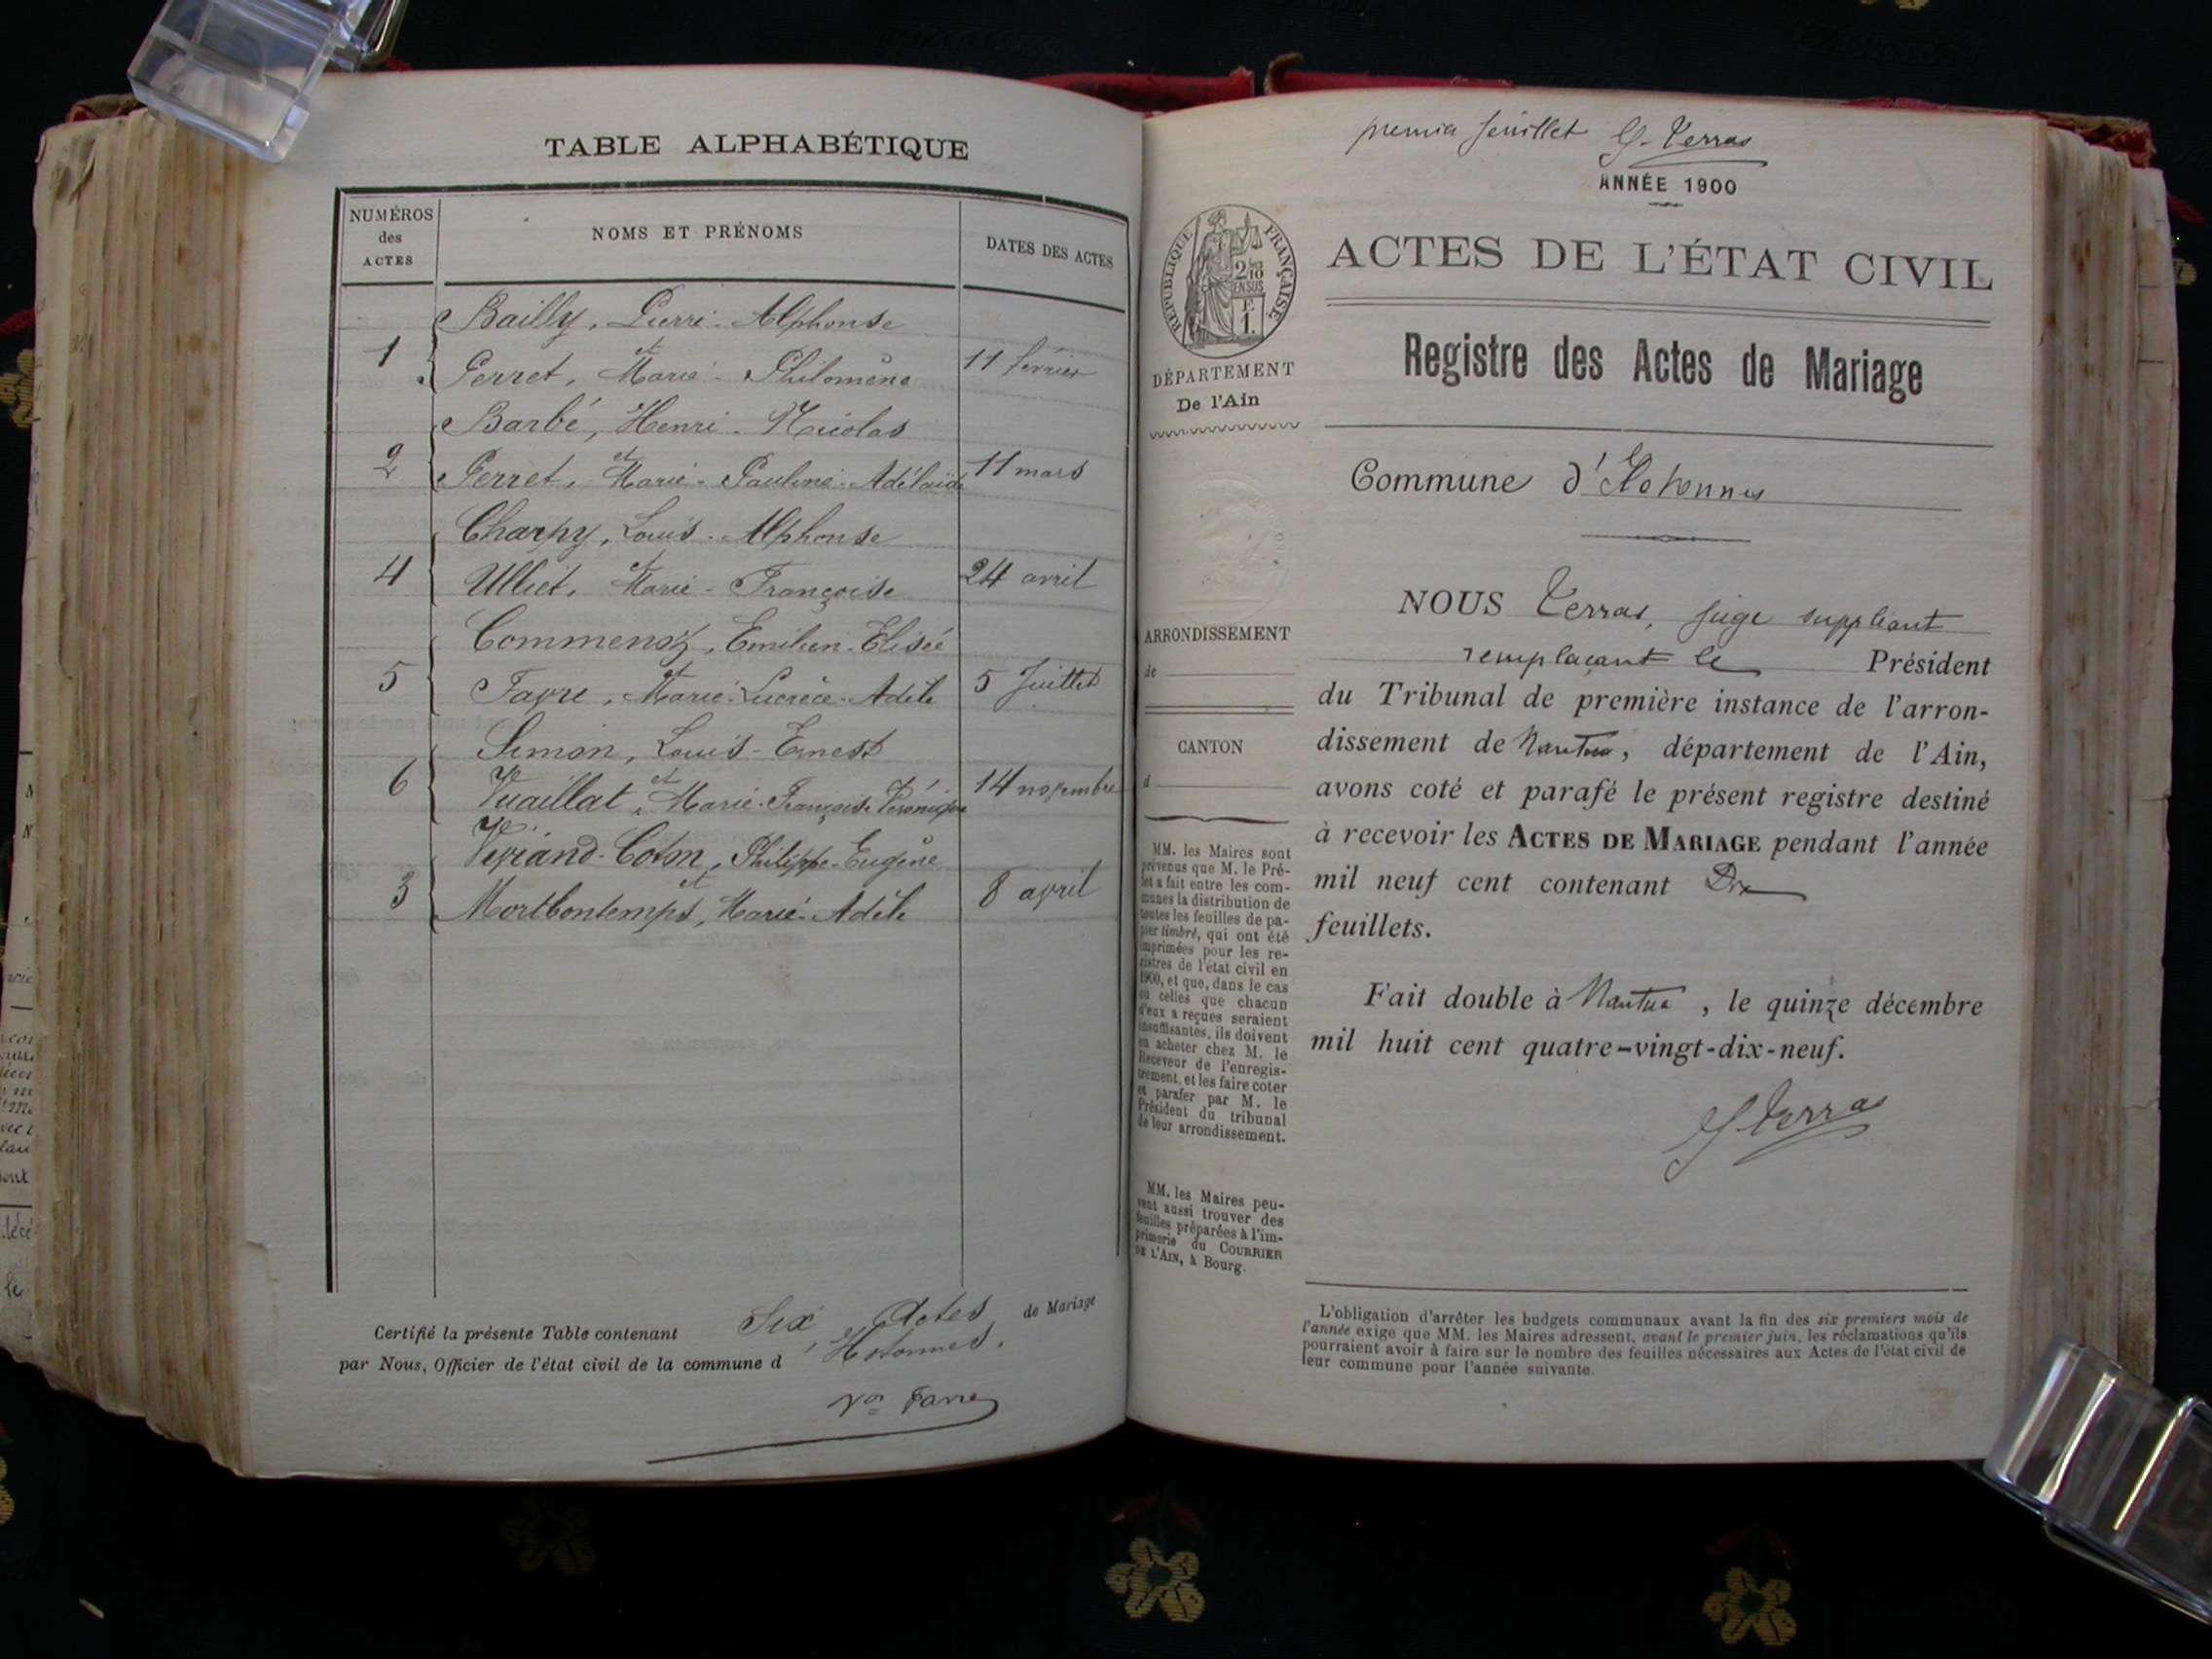 TABLE ALPHABÉTIQUE
NUMÉROS
des
ACTES
NOMS ET PRÉNOMS
DATES DES ACTES
Bailly, Pierre-Alphonse
1
et
11 février
Perret, Marie-Philomène
Barbé, Henri-Nicolas
2
et
11 mars
Perret, Marie-Pauline-Adélaïde
Charpy, Louis-Alphonse
4
et
24 avril
Ulliet, Marie-Françoise
Commenoz, Emilien-Elisée
5
et
5 Juillet
Favre, Marie-Lucrèce-Adèle
Simon, Louis-Ernest
6
et
14 novembre
Vuaillat, Marie-Françoise Véronique
Philippe-Eugène
3
et
8 avril
Montbontemps, Marie-Adèle
Certifié la présente Table contenant Six Actes de Mariage
par Nous, Officier de l'état civil de la commune d'Hotonnes.
Favre
premier feuillet G. Terras
ANNÉE 1900
RÉPUBLIQUE FRANÇAISE
2
F.
1.
DÉPARTEMENT
De l'Ain
ARRONDISSEMENT
de
CANTON
d
MM. les Maires sont
prévenus que M. le Pré-
fet a fait entre les com-
munes la distribution de
toutes les feuilles de pa-
pier timbré, qui ont été
imprimées pour les re-
gistres de l'état civil en
1900, et que, dans le cas
où celles que chacun
d'eux a reçues seraient
insuffisantes, ils doivent
en acheter chez M. le
Receveur de l'enregis-
trement, et les faire coter
et parafer par M. le
Président du tribunal
de leur arrondissement.
MM. les Maires peu-
vent aussi trouver des
feuilles préparées à l'im-
primerie du COURRIER
DE L'AIN, à Bourg.
ACTES DE L'ÉTAT CIVIL
Registre des Actes de Mariage
Commune d'Hotonnes
NOUS Terras, juge suppléant
remplaçant le Président
du Tribunal de première instance de l'arron-
dissement de Nantua, département de l'Ain,
avons coté et parafé le présent registre destiné
à recevoir les ACTES DE MARIAGE pendant l'année
mil neuf cent contenant Dix
feuillets.
Fait double à Nantua, le quinze décembre
mil huit cent quatre-vingt-dix-neuf.
G. Terras
L'obligation d'arrêter les budgets communaux avant la fin des six premiers mois de
l'année exige que MM. les Maires adressent, avant le premier juin, les réclamations qu'ils
pourraient avoir à faire sur le nombre des feuilles nécessaires aux Actes de l'état civil de
leur commune pour l'année suivante.